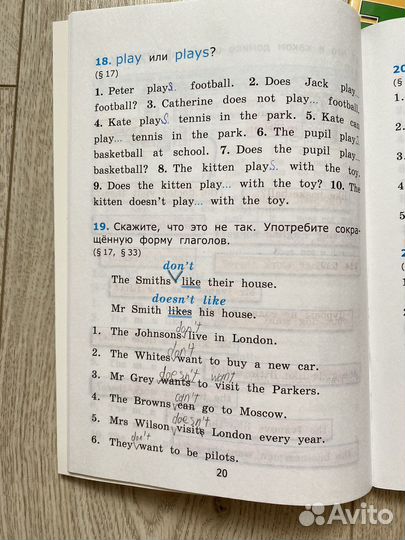 18. play или plays?
(§ 17)
1. Peter plays. football. 2. Does Jack play...
football? 3. Catherine does not play... football.
4. Kate plays. tennis in the park. 5. Kate can
play... tennis in the park. 6. The pupil plays.
basketball at school. 7. Does the pupil play...
basketball? 8. The kitten plays. with the toy.
9. Does the kitten play... with the toy? 10. The
kitten doesn't play... with the toy.
19. Скажите, что это не так. Употребите сокра-
щённую форму глаголов.
(§ 17, § 33)
don't
The Smiths like their house.
doesn't like
Mr Smith likes his house.
don't
1. The Johnsons live in London.
don't
2. The Whites want to buy a new car.
doesn't want
3. Mr Grey wants to visit the Parkers.
can't
4. The Browns can go to Moscow.
doesn't
5. Mrs Wilson visits London every year.
don't
6. They want to be pilots.
20
20
(§
1.
2.
3.
4.
5.
6.
Avito